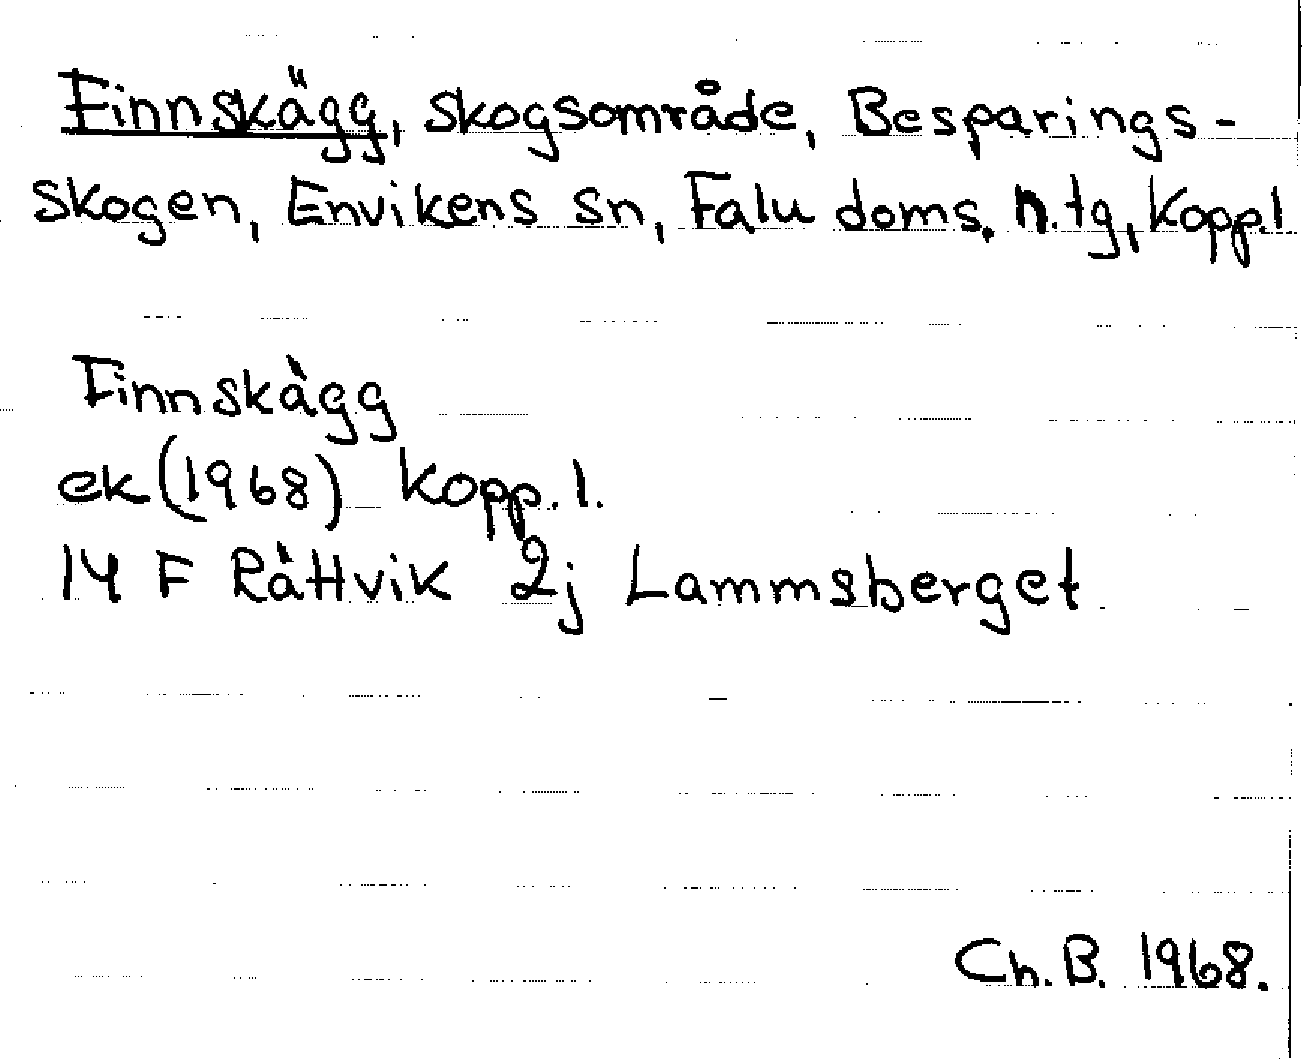 Finnskägg, skogsområde, Besparings-
skogen, Envikens sn, Falu doms. n.tg, Kopp.l
Finnskàgg
ek (1968) Kopp.l.
14 F Ràttvik 2j Lammsberget
Ch.B. 1968.